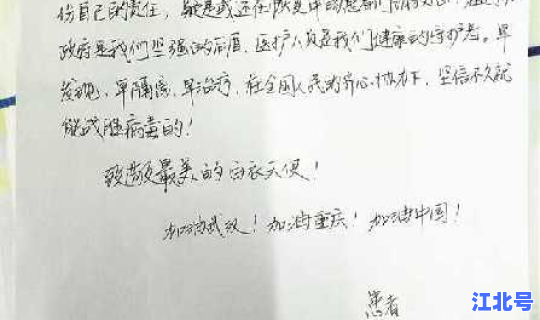 份自己的责任，疑是或还在恢复中的患者
政府是我们坚强的后盾，医护人员是我们健康的守护者。早
发现、早隔离、早治疗，在全国人民的齐心协力下，坚信不久就
能战胜病毒的！
致敬最美的白衣天使！
加油武汉！加油重庆！加油中国！
患者
江北号